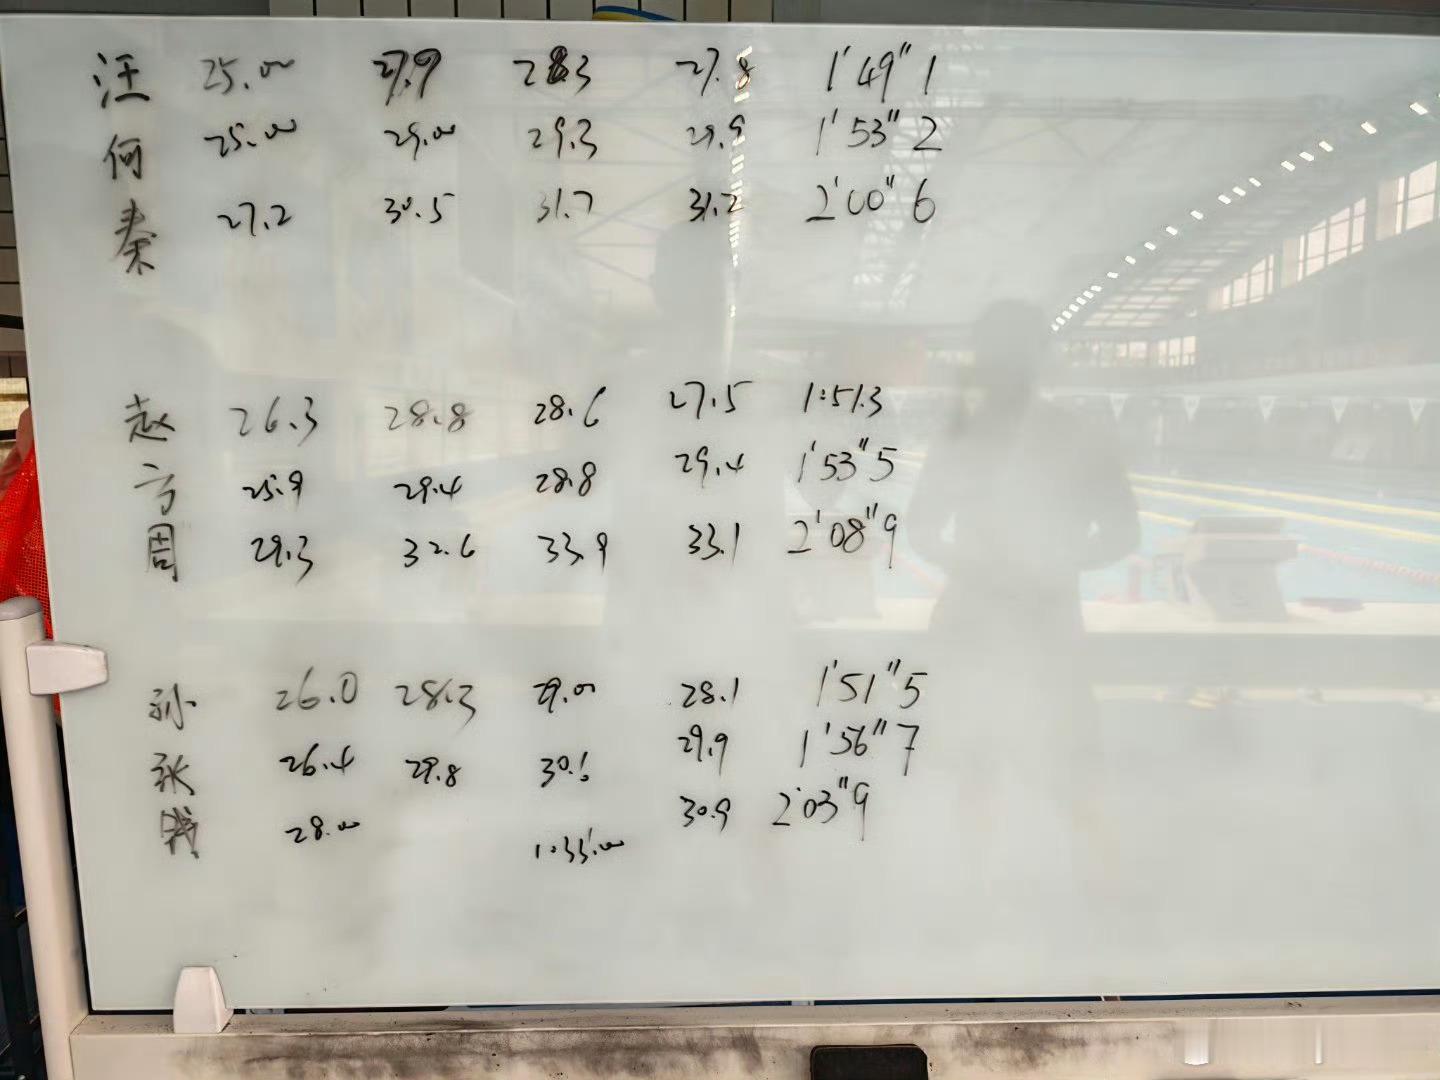 汪 25.00 27.9 28.3 27.8 1'49"1
何 25.00 29.00 29.3 29.9 1'53"2
秦 27.2 30.5 31.7 31.2 2'00"6
赵 26.3 28.8 28.6 27.5 1:51.3
方 25.9 29.4 28.8 29.4 1'53"5
周 29.3 32.6 33.9 33.1 2'08"9
孙 26.0 28.3 29.00 28.1 1'51"5
张 26.4 29.8 30.6 29.9 1'56"7
钱 28.00 1:33.00 30.9 2'03"9